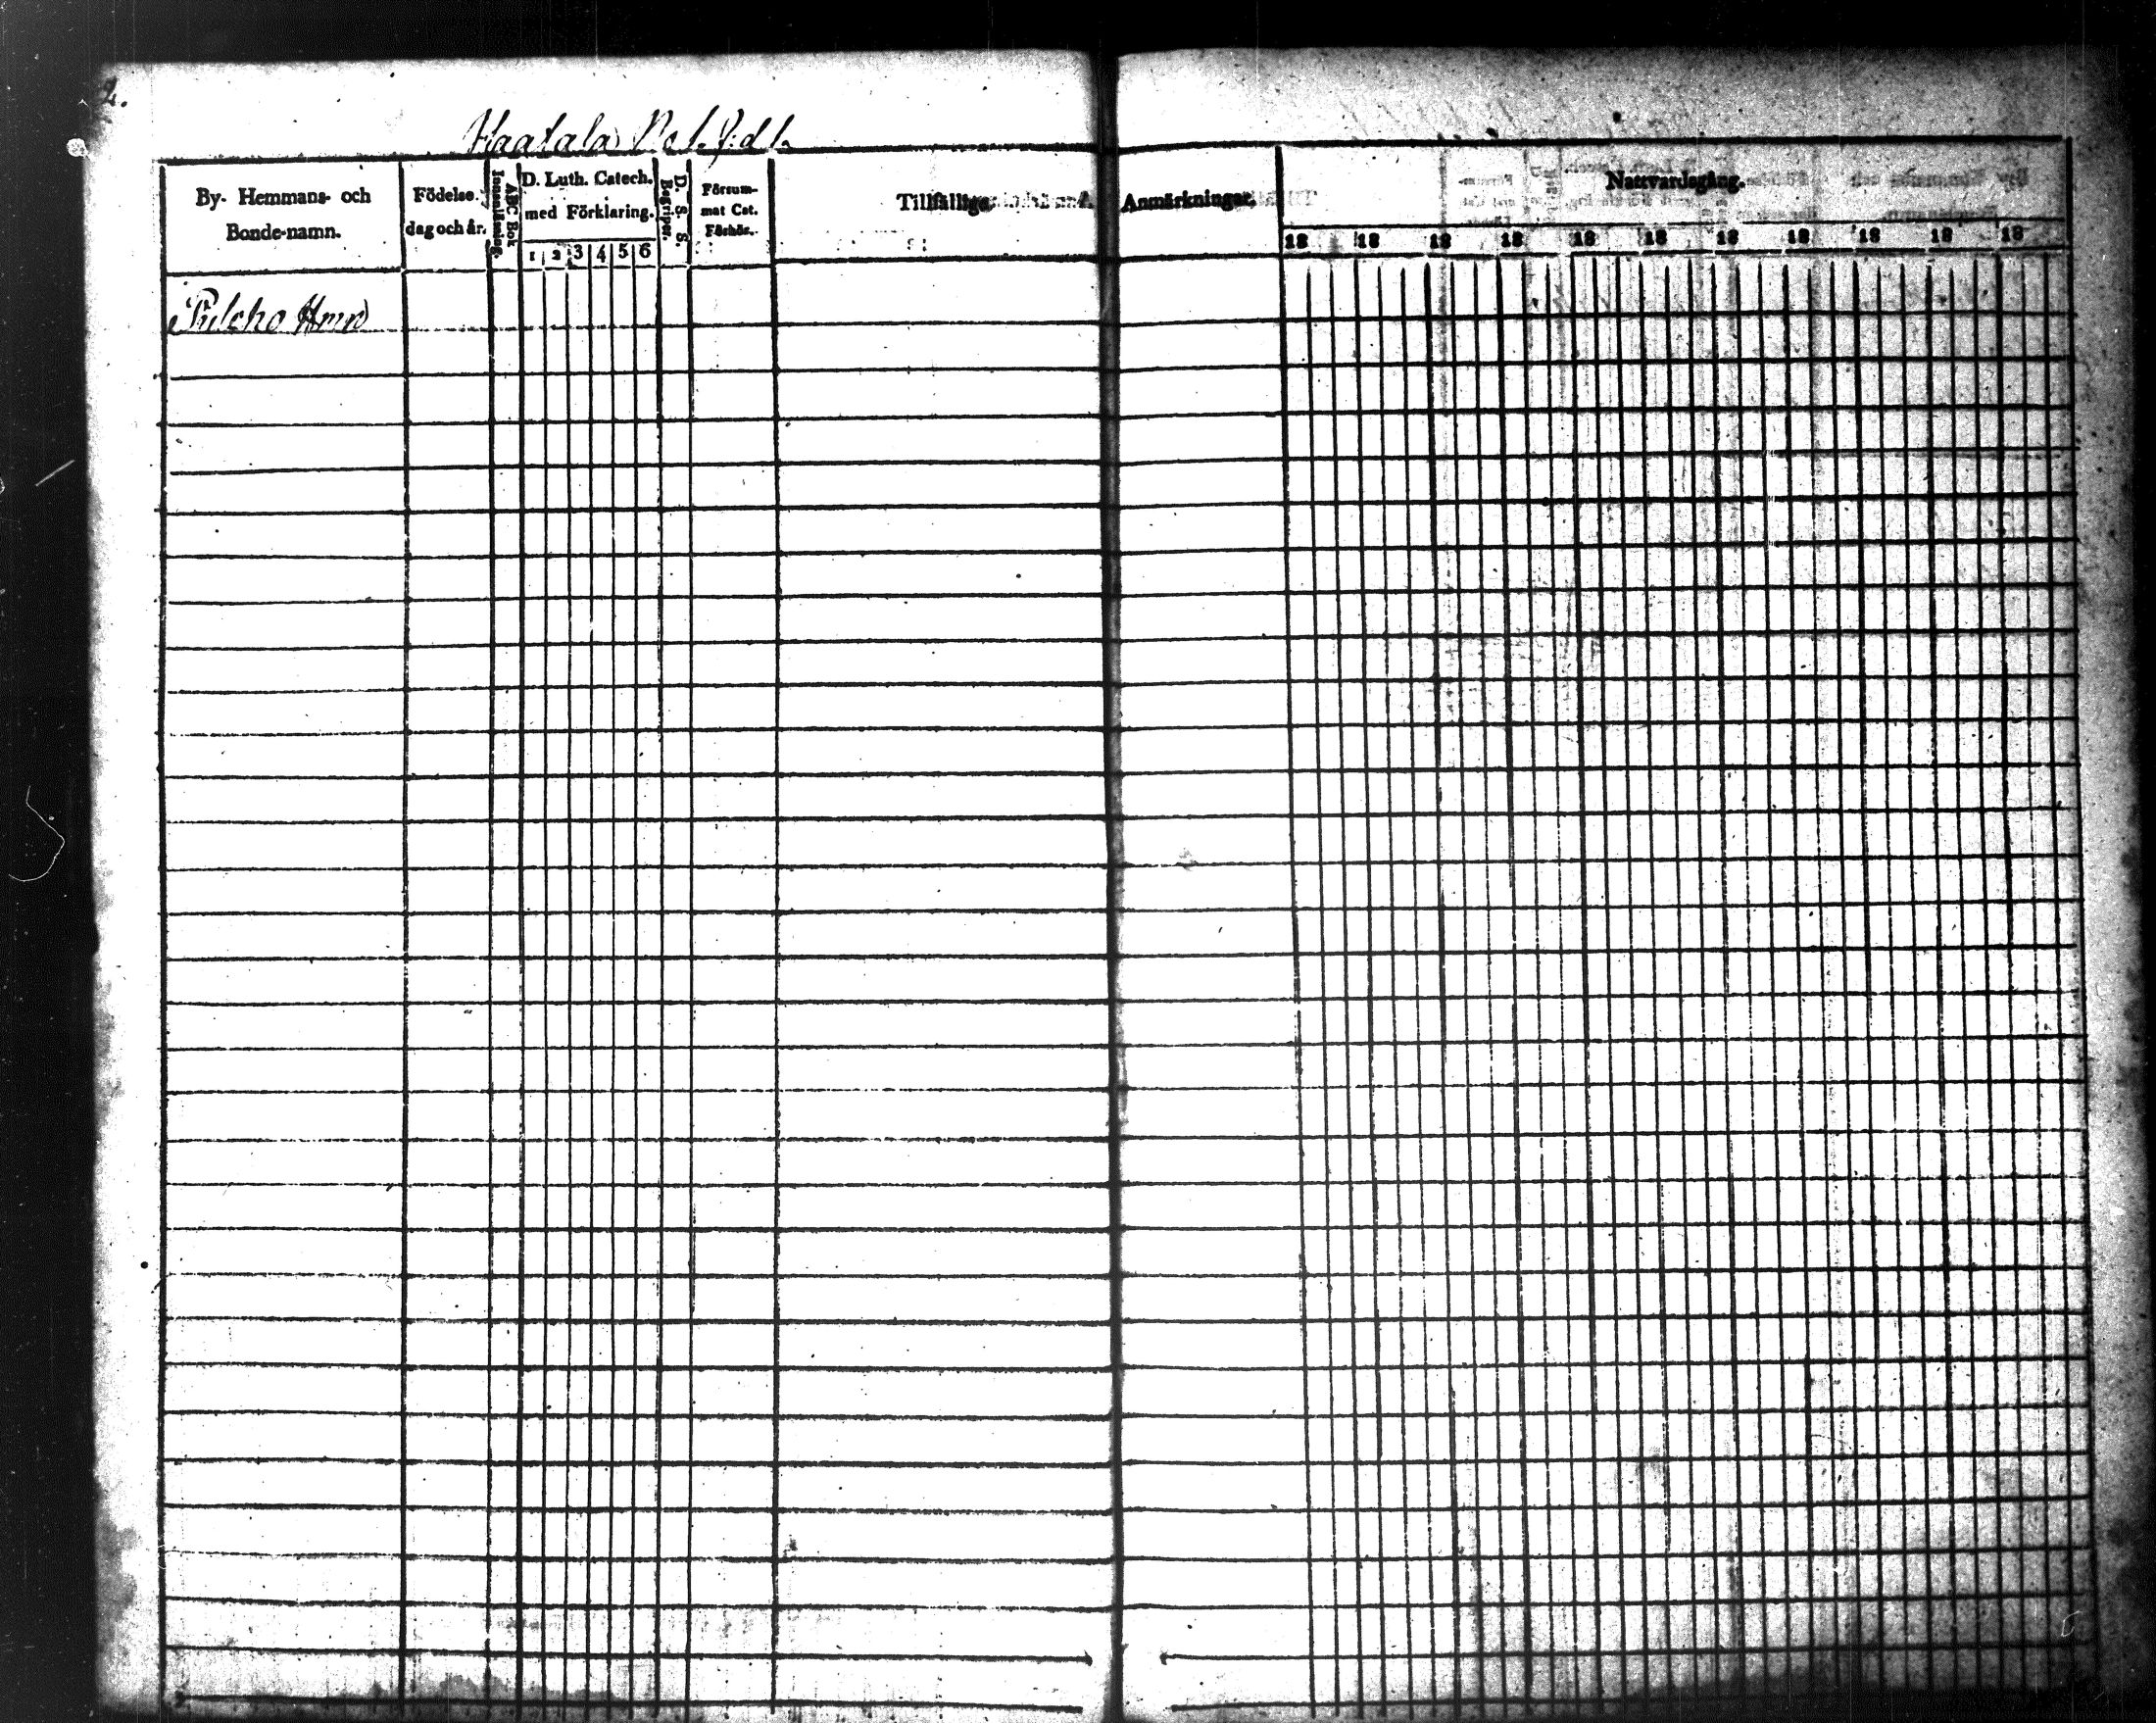 2.
Haatala No 1. f.d 1.
By- Hemmans- och
Bonde-namn.
Födelse-
dag och år.
ABC Bok
Innanläsning.
D. Luth. Catech.
med Förklaring.
1 2 3 4 5 6
D. S. S.
Begriper.
Försum-
mat Cat.
Förhör.
Tillfällige Anmärkningar.
Nattvardsgång.
18 18 18 18 18 18 18 18 18 18 18